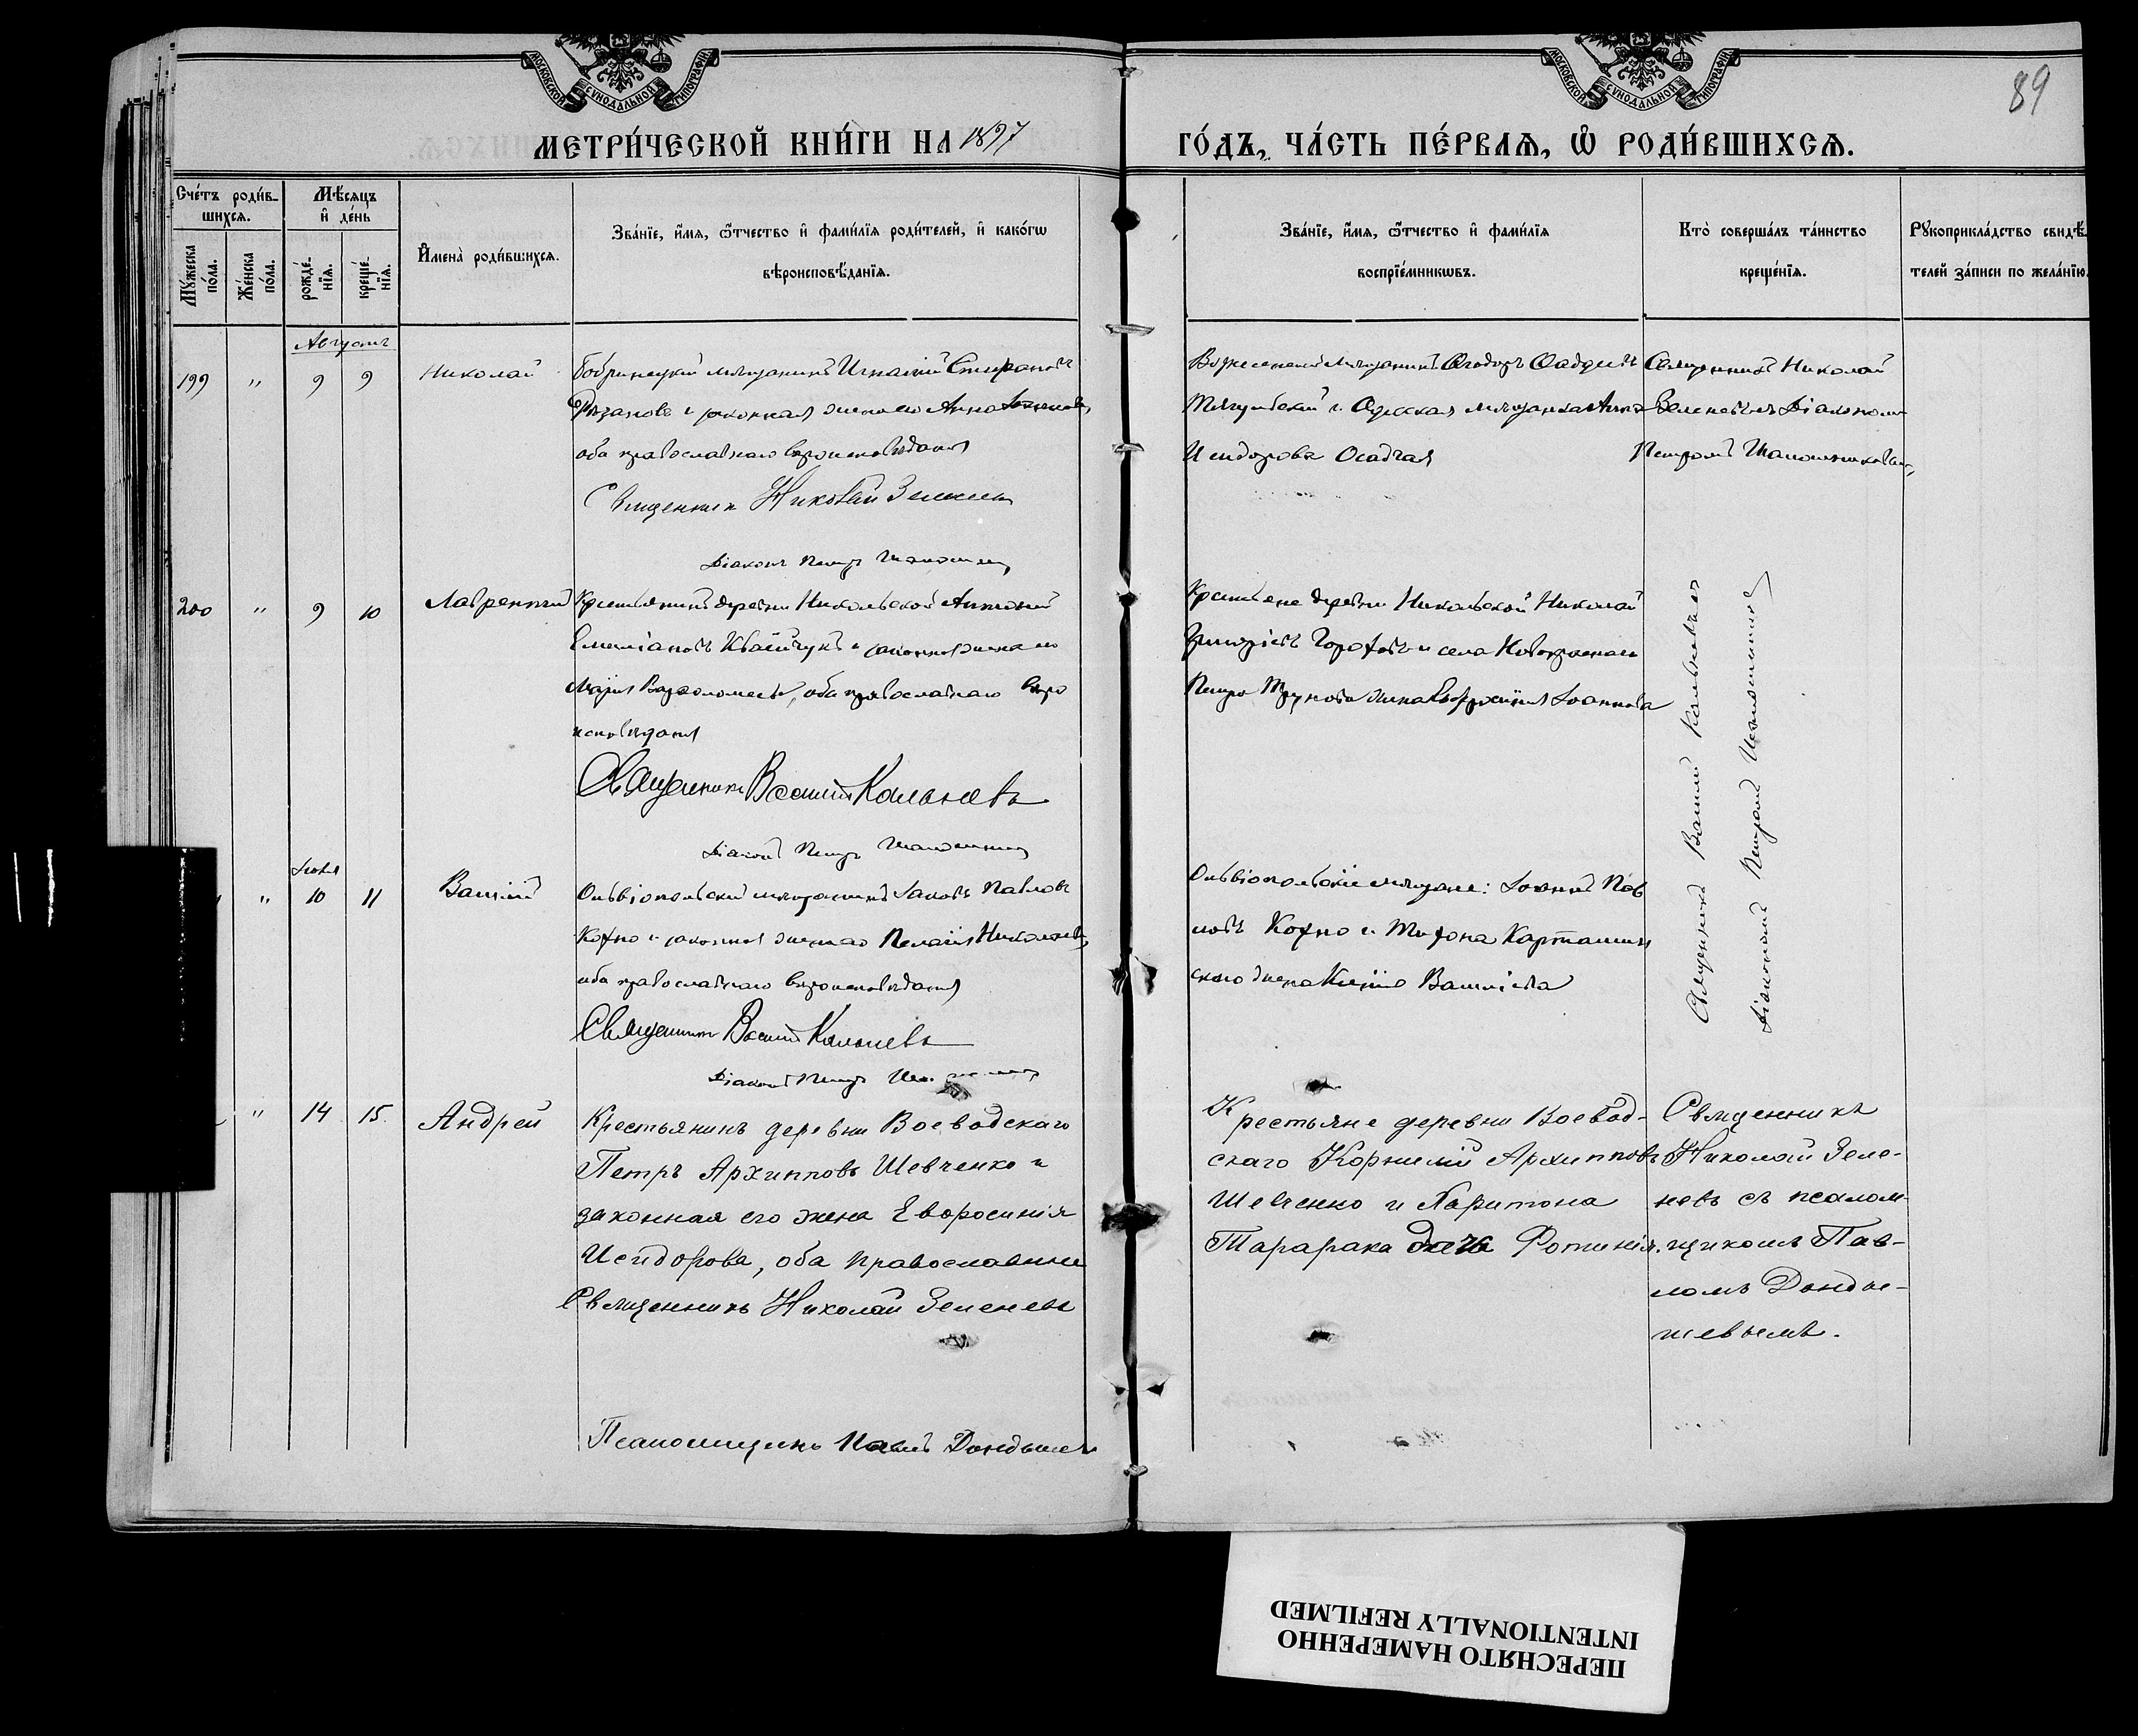 89
МОСКОВСКОЙ СѴНОДАЛЬНОЙ ТИПОГРАФІИ
МОСКОВСКОЙ СѴНОДАЛЬНОЙ ТИПОГРАФІИ
МЕТРИ́ЧЕСКОЙ КНИ́ГИ НА 1897
ГО́ДЪ, ЧА́СТЬ ПЕ́РВАѦ, Ѽ РОДИ́ВШИХСѦ.
Сче́тъ роди́в-
шихсѧ.
Мꙋ́жеска по́ла.
Же́нска по́ла.
Мѣ́сѧцъ
и҆ де́нь
рожде́-нїѧ.
креще́-нїѧ.
И҆мена̀ роди́вшихсѧ.
Зва́нїе, и҆́мѧ, ѻ҆́тчество и҆ фами́лїѧ роди́телей, и҆ како́гѡ
вѣроисповѣ́данїѧ.
Зва́нїе, и҆́мѧ, ѻ҆́тчество и҆ фами́лїѧ
воспрїе́мникѡвъ.
Кто̀ соверша́лъ та́инство
креще́нїѧ.
Рꙋкоприкла́дство свидѣ́-
телей за́писи по жела́нїю.
Августъ
199 " 9 9 Николай
Бобринецкий мѣщанинъ Игнатій Стефановъ
Рязановъ и законная жена его Анна
оба православнаго вѣроисповѣданія
Священникъ Николай Зеленевъ
Діаконъ Петръ
Вознесенский мѣщанинъ Ѳеодоръ
и Одесская мѣщанка Анна
Исидорова Осадчая
Священникъ Николай
Зеленевъ съ Діакономъ
Петромъ
200 " 9 10 Лаврентий
Крестьянинъ деревни Никольской Антоній
Емеліановъ и законная жена его
Марія Варѳоломеева, оба православнаго вѣро
исповѣданія
Священникъ Василій Кальневъ
Діаконъ Петръ
Крестьяне деревни Никольской Николай
Григоріевъ Гороховъ и села Новокраснаго
Петра жена Евфросинія Іоаннова
Священникъ Василій Кальневъ
Діакономъ Петромъ
" 10 11 Василій
Ольвіопольский мѣщанинъ Іаковъ Павловъ
Кохно и законная жена его Пелагія Николаева
оба православнаго вѣроисповѣданія
Священникъ Василій Кальневъ
Діаконъ Петръ
Ольвіопольскіе мѣщане: Іоаннъ Пав
ловъ Кохно и Тихона Карташин
скаго жена Ксенія Василіева
" 14 15. Андрей
Крестьянинъ деревни Воеводскаго
Петръ Архипповъ Шевченко и
законная его жена Евфросинія
Исидорова, оба православные
Священникъ Николай Зеленевъ
Псаломщикъ Павелъ Дондышевъ
Крестьяне деревни Воевод-
скаго Корнилій Архипповъ
Шевченко и Харитона
Тарарака дочь Фотинія.
Священникъ
Николай Зеле-
невъ съ псалом-
щикомъ Пав-
ломъ Донды-
шевымъ.
ПЕРЕСНЯТО НАМЕРЕННО
INTENTIONALLY REFILMED